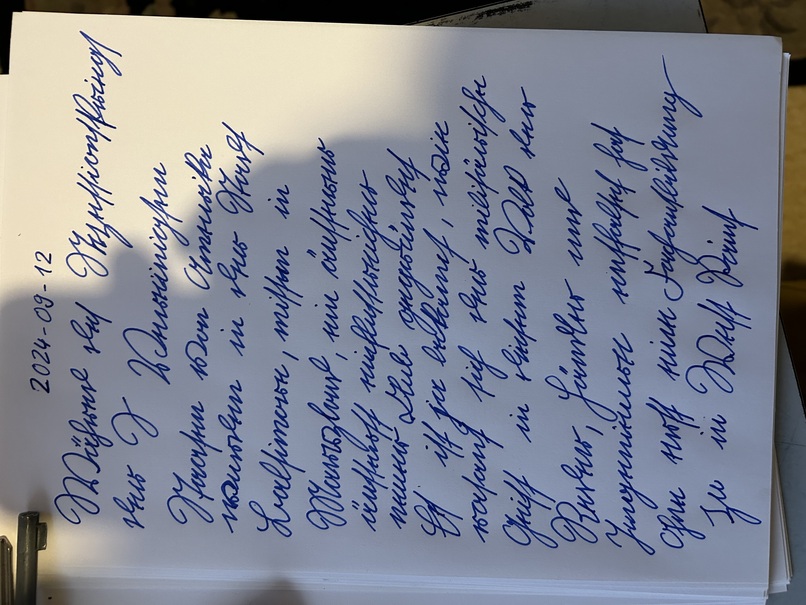 2024-09-12
Während des Sezessionskriegs
der V Vereinigten
Staaten von Amerika
wurden in der Stadt
Baltimore, mitten in
Maryland, ein äußerer
äußerst einflussreicher
neuer Club gegründet
Es ist ja bekannt, wie
rasant sich der militärische
Geist in diesem Volk der
Reeder, Händler und
Ingenieure entfaltet hat
ohne erst eine Fachausbildung
zu in West Point